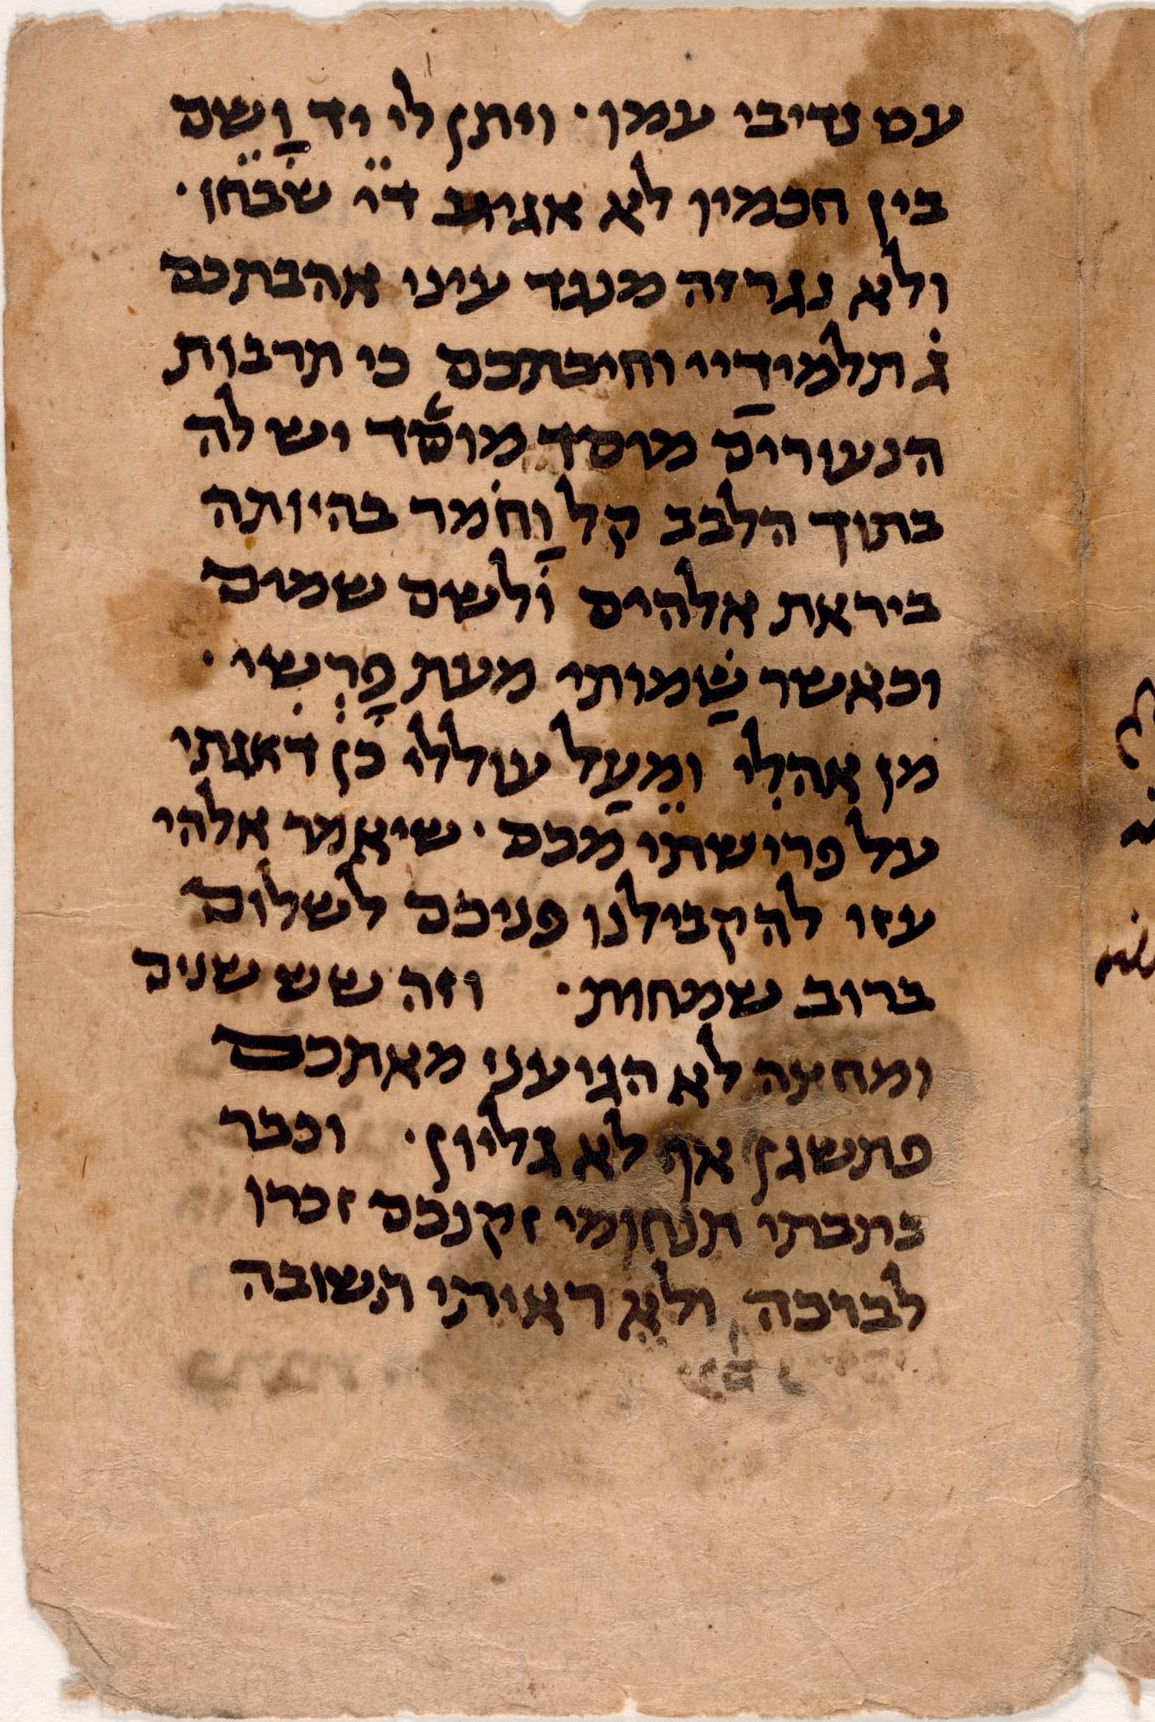 עם נדיבי עמן · ויתן לי יד וַשֵם
בין חכמין לא אגיוב דיי שבחן ·
ולא נגרזה מנגד עיני אהבתכם
ג תלמידַיי וחיבתכם כי תרבות
הנעורים מוסד מוסד ויש לה
בתוך הלבב קל וַחֹמר בהיותה
ביראת אלהים ולשם שמים
וכאשר שַׁמותי מעת פָרְשִׁי ·
מן אהלי ומֵעַל עוללי כן דאגתי
על פרישתי מכם · שיאמר אלהי
עזו להקבילנו פניכם לשלום
ברוב שמחות · וזה שש שנים
ומחצה לא הגיעני מאתכם
פתשגן אף לא גליון · וכבר
כתבתי תנחומי זקנכם זכרו
לברכה ולא ראיתי תשובה